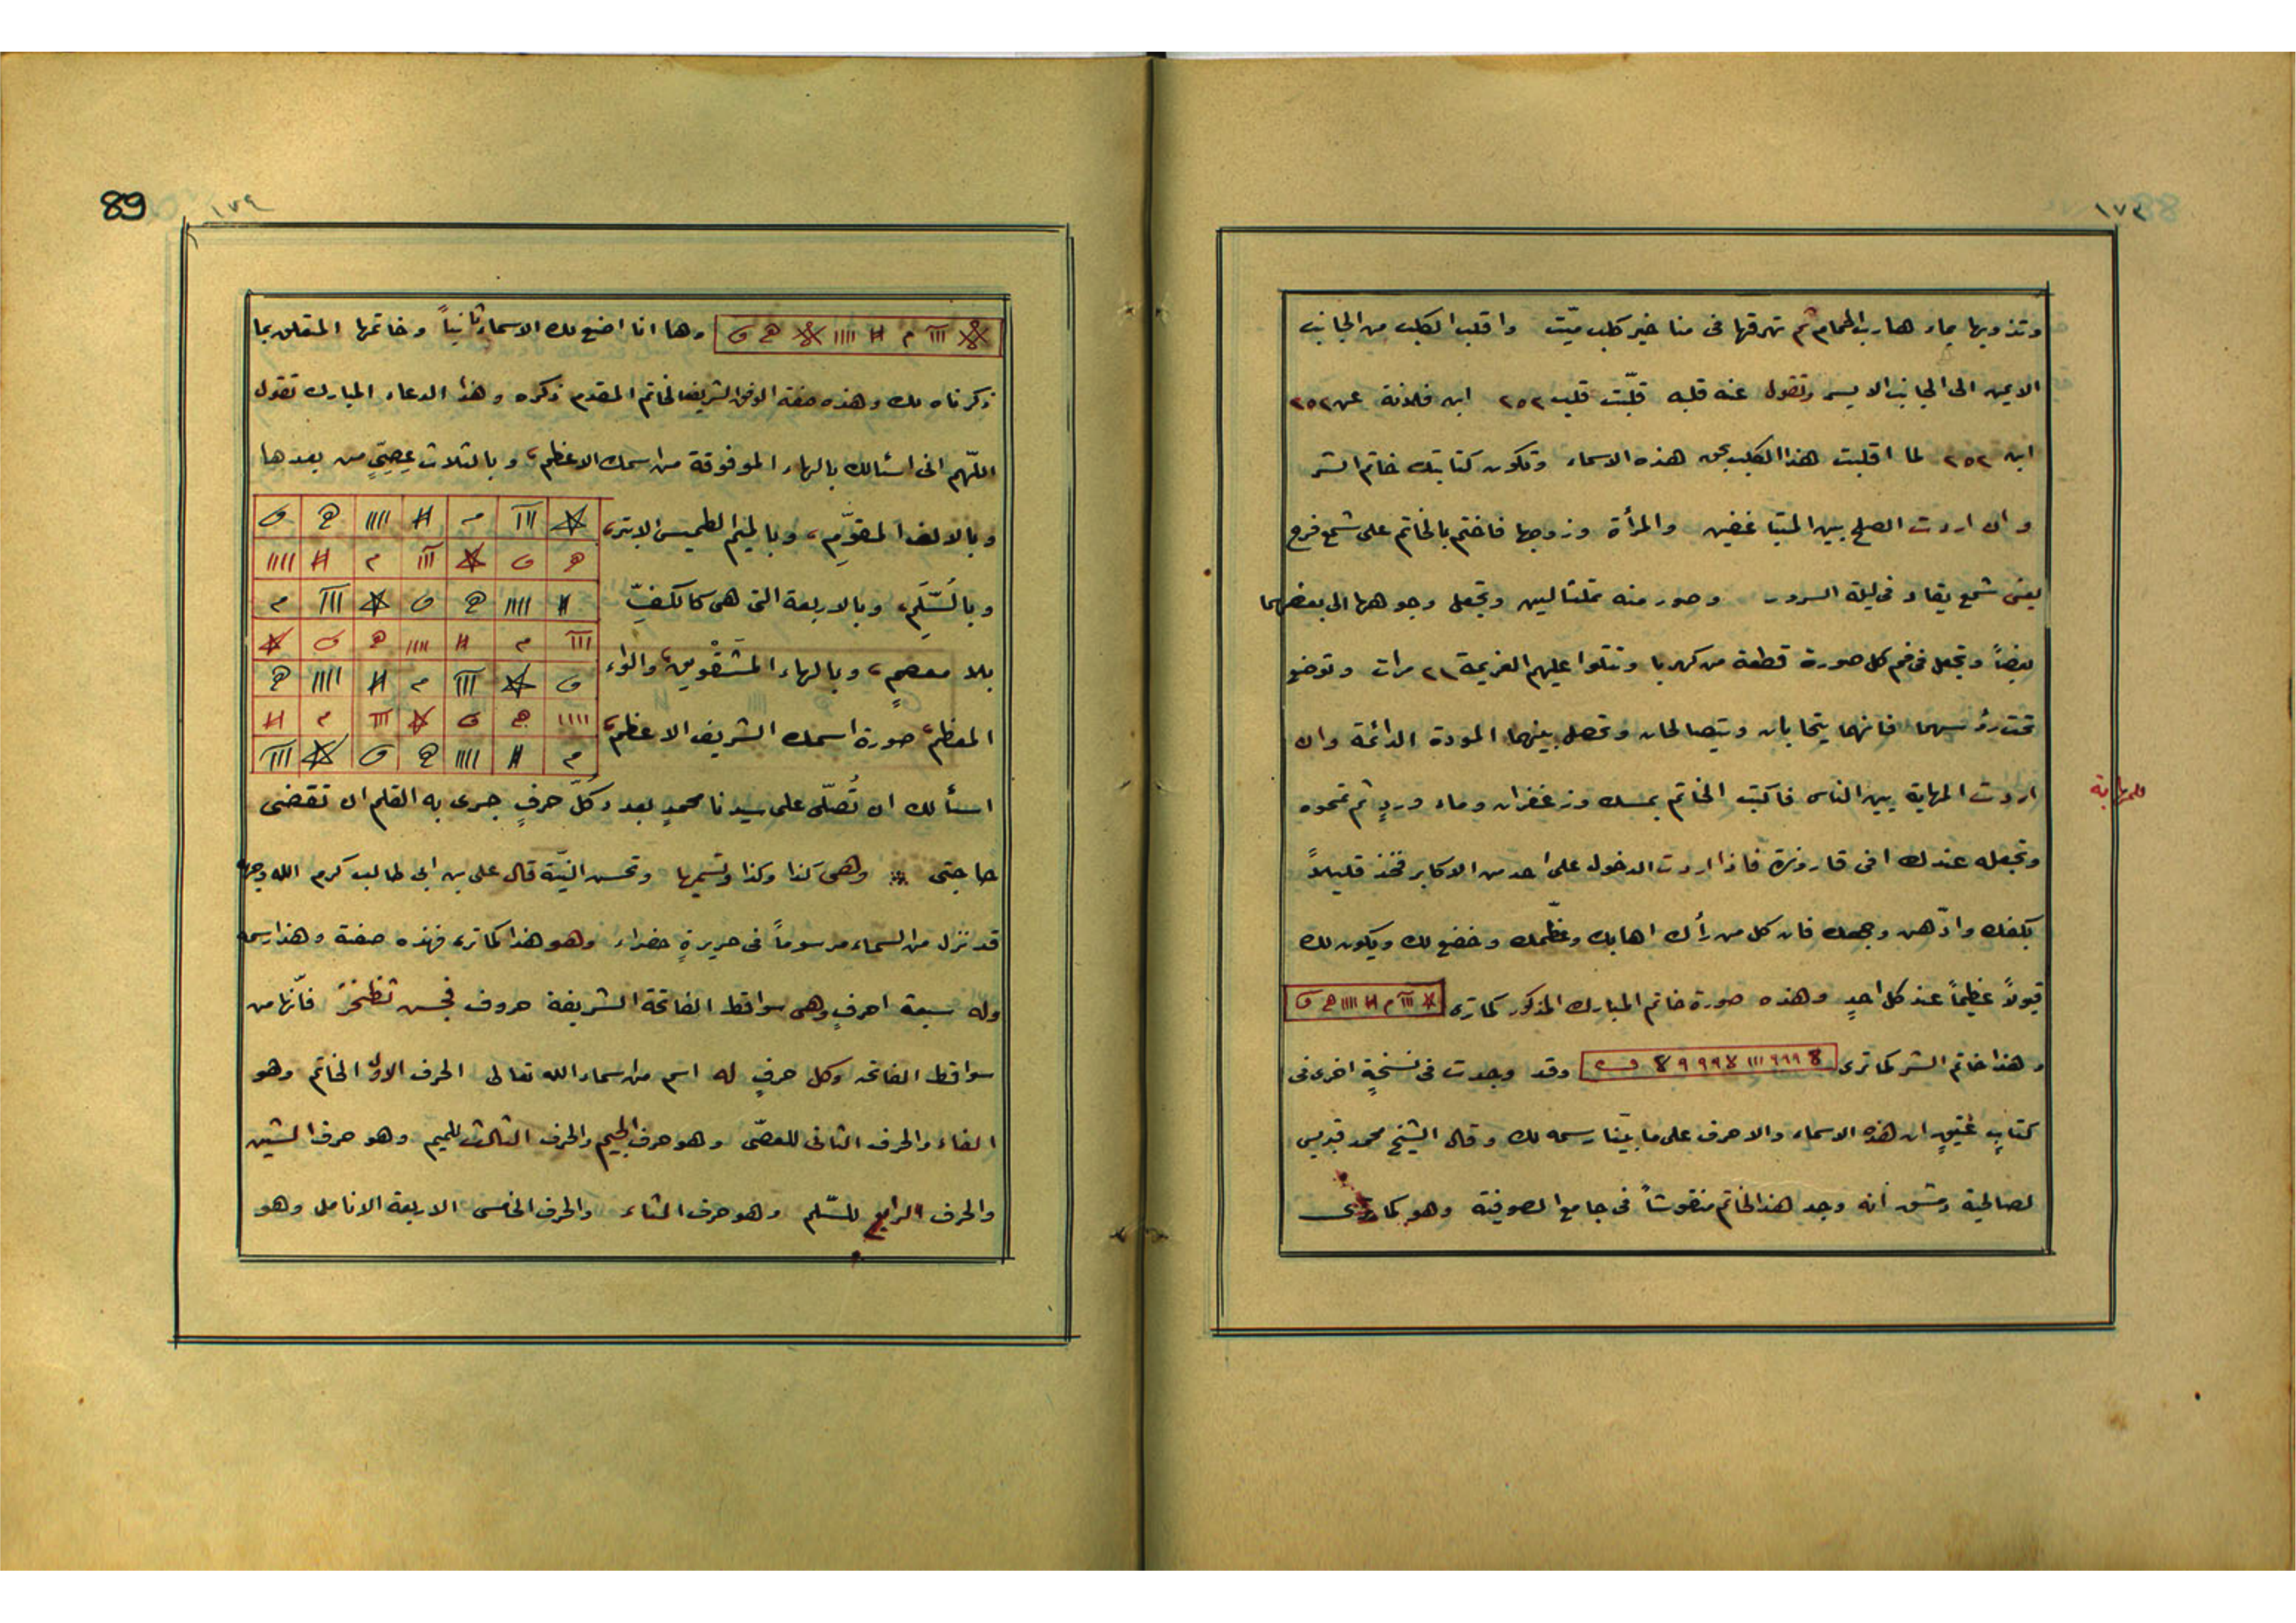 ١٧٣
وتذوبها بماء هارب الحمام ثم تهرقها فى مناخير كلب ميّت واقلب الكلب من الجانب
الايمن الى الجانب الايسر وتقول عنه قلبه قلّبت قلب ٢٥٢ ابن فلانة عن ٢٥٢
ابن ٢٥٢ لما اقلبت هذا الكلب بحق هذه الاسماء وتكون كتابتك خاتم الشر
وان اردت الصلح بين المتباغضين والمرأة وزوجها فاختم بالخاتم على شمع فرح
يعنى شمع يقاد فى ليلة السرور وصور منه تمثالين وتجعل وجوههما الى بعضهما
بعضاً وتجعل فى فم كل صورة قطعة من كهربا وتتلوا عليهم العزيمة ٢١ مرات وتوضع
تحت رؤسهما فانهما يتحابان ويتصالحان وتحصل بينهما المودة الدائمة وان
اردت المهابة بين الناس فاكتب الخاتم بمسك وزعفران وماء وردٍ ثم تمحوه
للمهابة
وتجعله عندك فى قارورة فاذا اردت الدخول على احد من الاكابر فخذ قليلاً
بكفك وادّهن وجهك فان كل من رأك اهابك وعظّمك وخضع لك ويكون لك
قبولاً عظيماً عند كل احدٍ وهذه صورة خاتم المبارك المذكور كما ترى
وهذا خاتم الشر كما ترى وقد وجدت فى نسخةٍ اخرى فى
كتابٍ عتيقٍ ان هذه الاسماء والاحرف على ما بيّنا رسمه لك وقال الشيخ محمد قديسى
لصالحية دمشق انه وجد هذا الخاتم منقوشاً فى جامع الصوفية وهو كما ترى
89
١٧٤
وها انا اضع لك الاسماء ثانياً وخاتمها المتعلق بما
ذكرناه لك وهذه صفة الوفق الشريف الخاتم المقدم ذكره وهذا الدعاء المبارك تقول
اللّهم انى اسئالك بالهاء الموفوقة من اسمك الاعظم، وبالثلاث عِصِيٍّ من بعدها
وبالالف المقوّمِ، وبالميم الطميس الابتر،
وبالسُّلَّمِ، وبالاربعة التى هى كالكفِّ
بلا معصمٍ، وبالهاء المَشْقُوبين، والواء
المعظم، صورة اسمك الشريف الاعظم،
اسئالك ان تُصلّى على سيدنا محمدٍ بعدد كلّ حرفٍ جرى به القلم ان تقضى
حاجتى وهى كذا وكذا وتسميها وتحسن النيّة قال على بن ابى طالب كرم الله وجهه
قد نزل من السماء مرسوماً فى حريرةٍ خضراء وهو هذا كما ترى فهذه صفته وهذا رسمه
وله سبعة احرفٍ وهى سواقط الفاتحة الشريفة حروف فجش ثظخز فانّها من
سواقط الفاتحه وكل حرفٍ له اسم من اسماء الله تعالى الحرف الاول الخاتم وهو
الفاء والحرف الثانى للعصّى وهو حرف الجيم والحرف الثالث للميم وهو حرف الشين
والحرف الرابع للسّلم وهو حرف الثاء والحرف الخامس الاربعة الانامل وهو